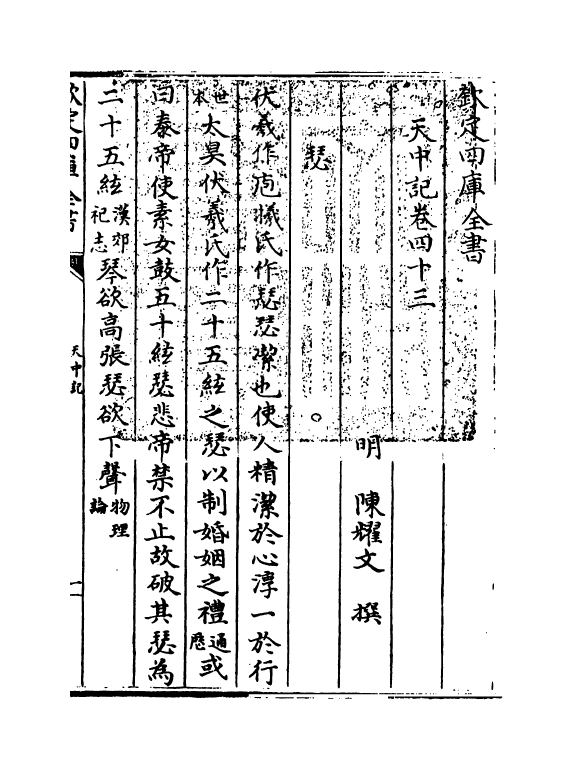 欽定四庫全書
天中記卷四十三
明 陳耀文 撰
瑟
伏羲作庖犧氏作瑟瑟潔也使人精潔於心淳一於行
世本太昊伏羲氏作二十五絃之瑟以制婚姻之禮通歷或
曰泰帝使素女鼓五十絃瑟悲帝禁不止故破其瑟為
二十五絃漢郊祀志琴欲高張瑟欲下聲物理論
欽定四庫全書
天中記
一